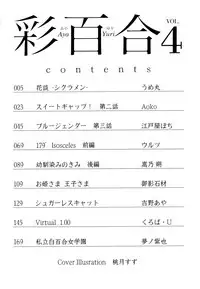 彩百合 VOL. 4
あや ゆり
Aya Yuri
contents
005 花談 -シクラメン- うめ丸
023 スイートギャップ! 第二話 Aoko
045 ブルージェンダー 第三話 江戸屋ぽち
069 179° Isosceles 前編 ウルツ
089 幼馴染みのきみ 後編 嵩乃 朔
109 お姫さま 王子さま 御影石材
129 シュガーレスキャット 吉野あや
145 Virtual 100 くろば・U
169 私立白百合女学園 夢ノ葉也
Cover Illustration 桃月すず